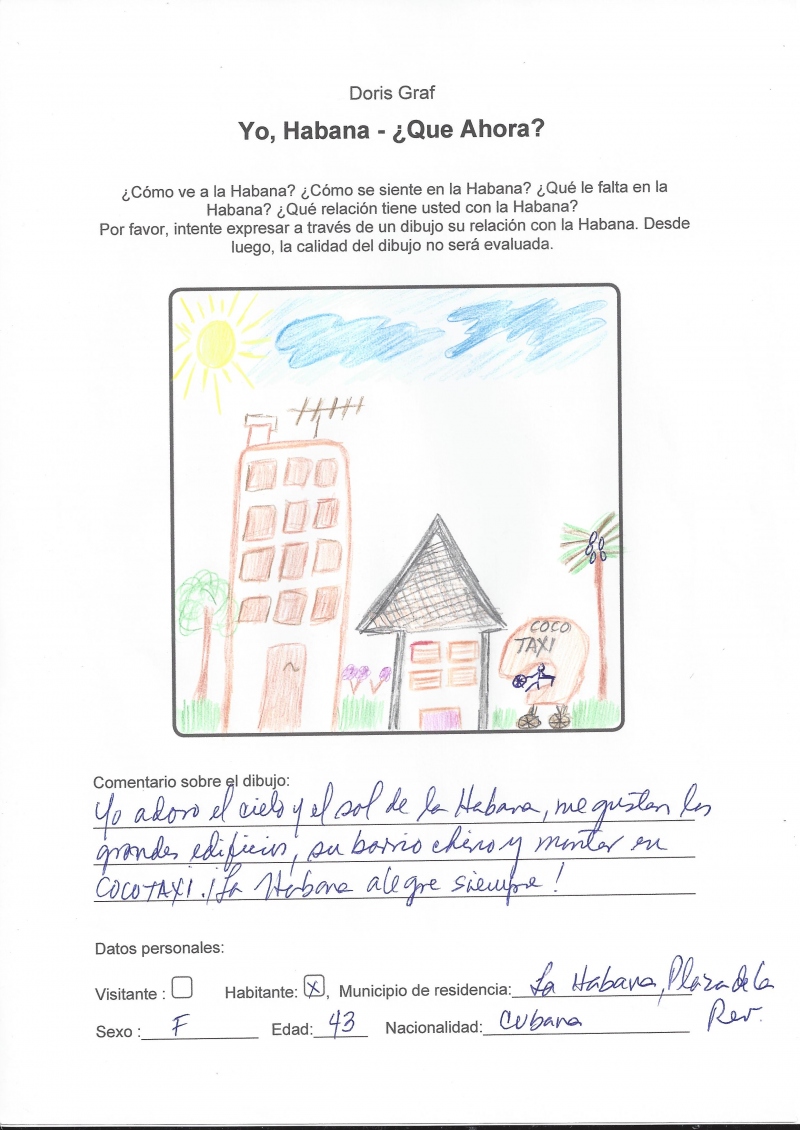 Doris Graf
Yo, Habana - ¿Que Ahora?
¿Cómo ve a la Habana? ¿Cómo se siente en la Habana? ¿Qué le falta en la
Habana? ¿Qué relación tiene usted con la Habana?
Por favor, intente expresar a través de un dibujo su relación con la Habana. Desde
luego, la calidad del dibujo no será evaluada.
COCO
TAXI
Comentario sobre el dibujo:
Yo adoro el cielo y el sol de la Habana, me gustan los
grandes edificios, su barrio chino y montar en
COCOTAXI. ¡La Habana alegre siempre!
Datos personales:
Visitante : Habitante: X, Municipio de residencia: La Habana, Plaza de la
Rev.
Sexo : F Edad: 43 Nacionalidad: Cubana